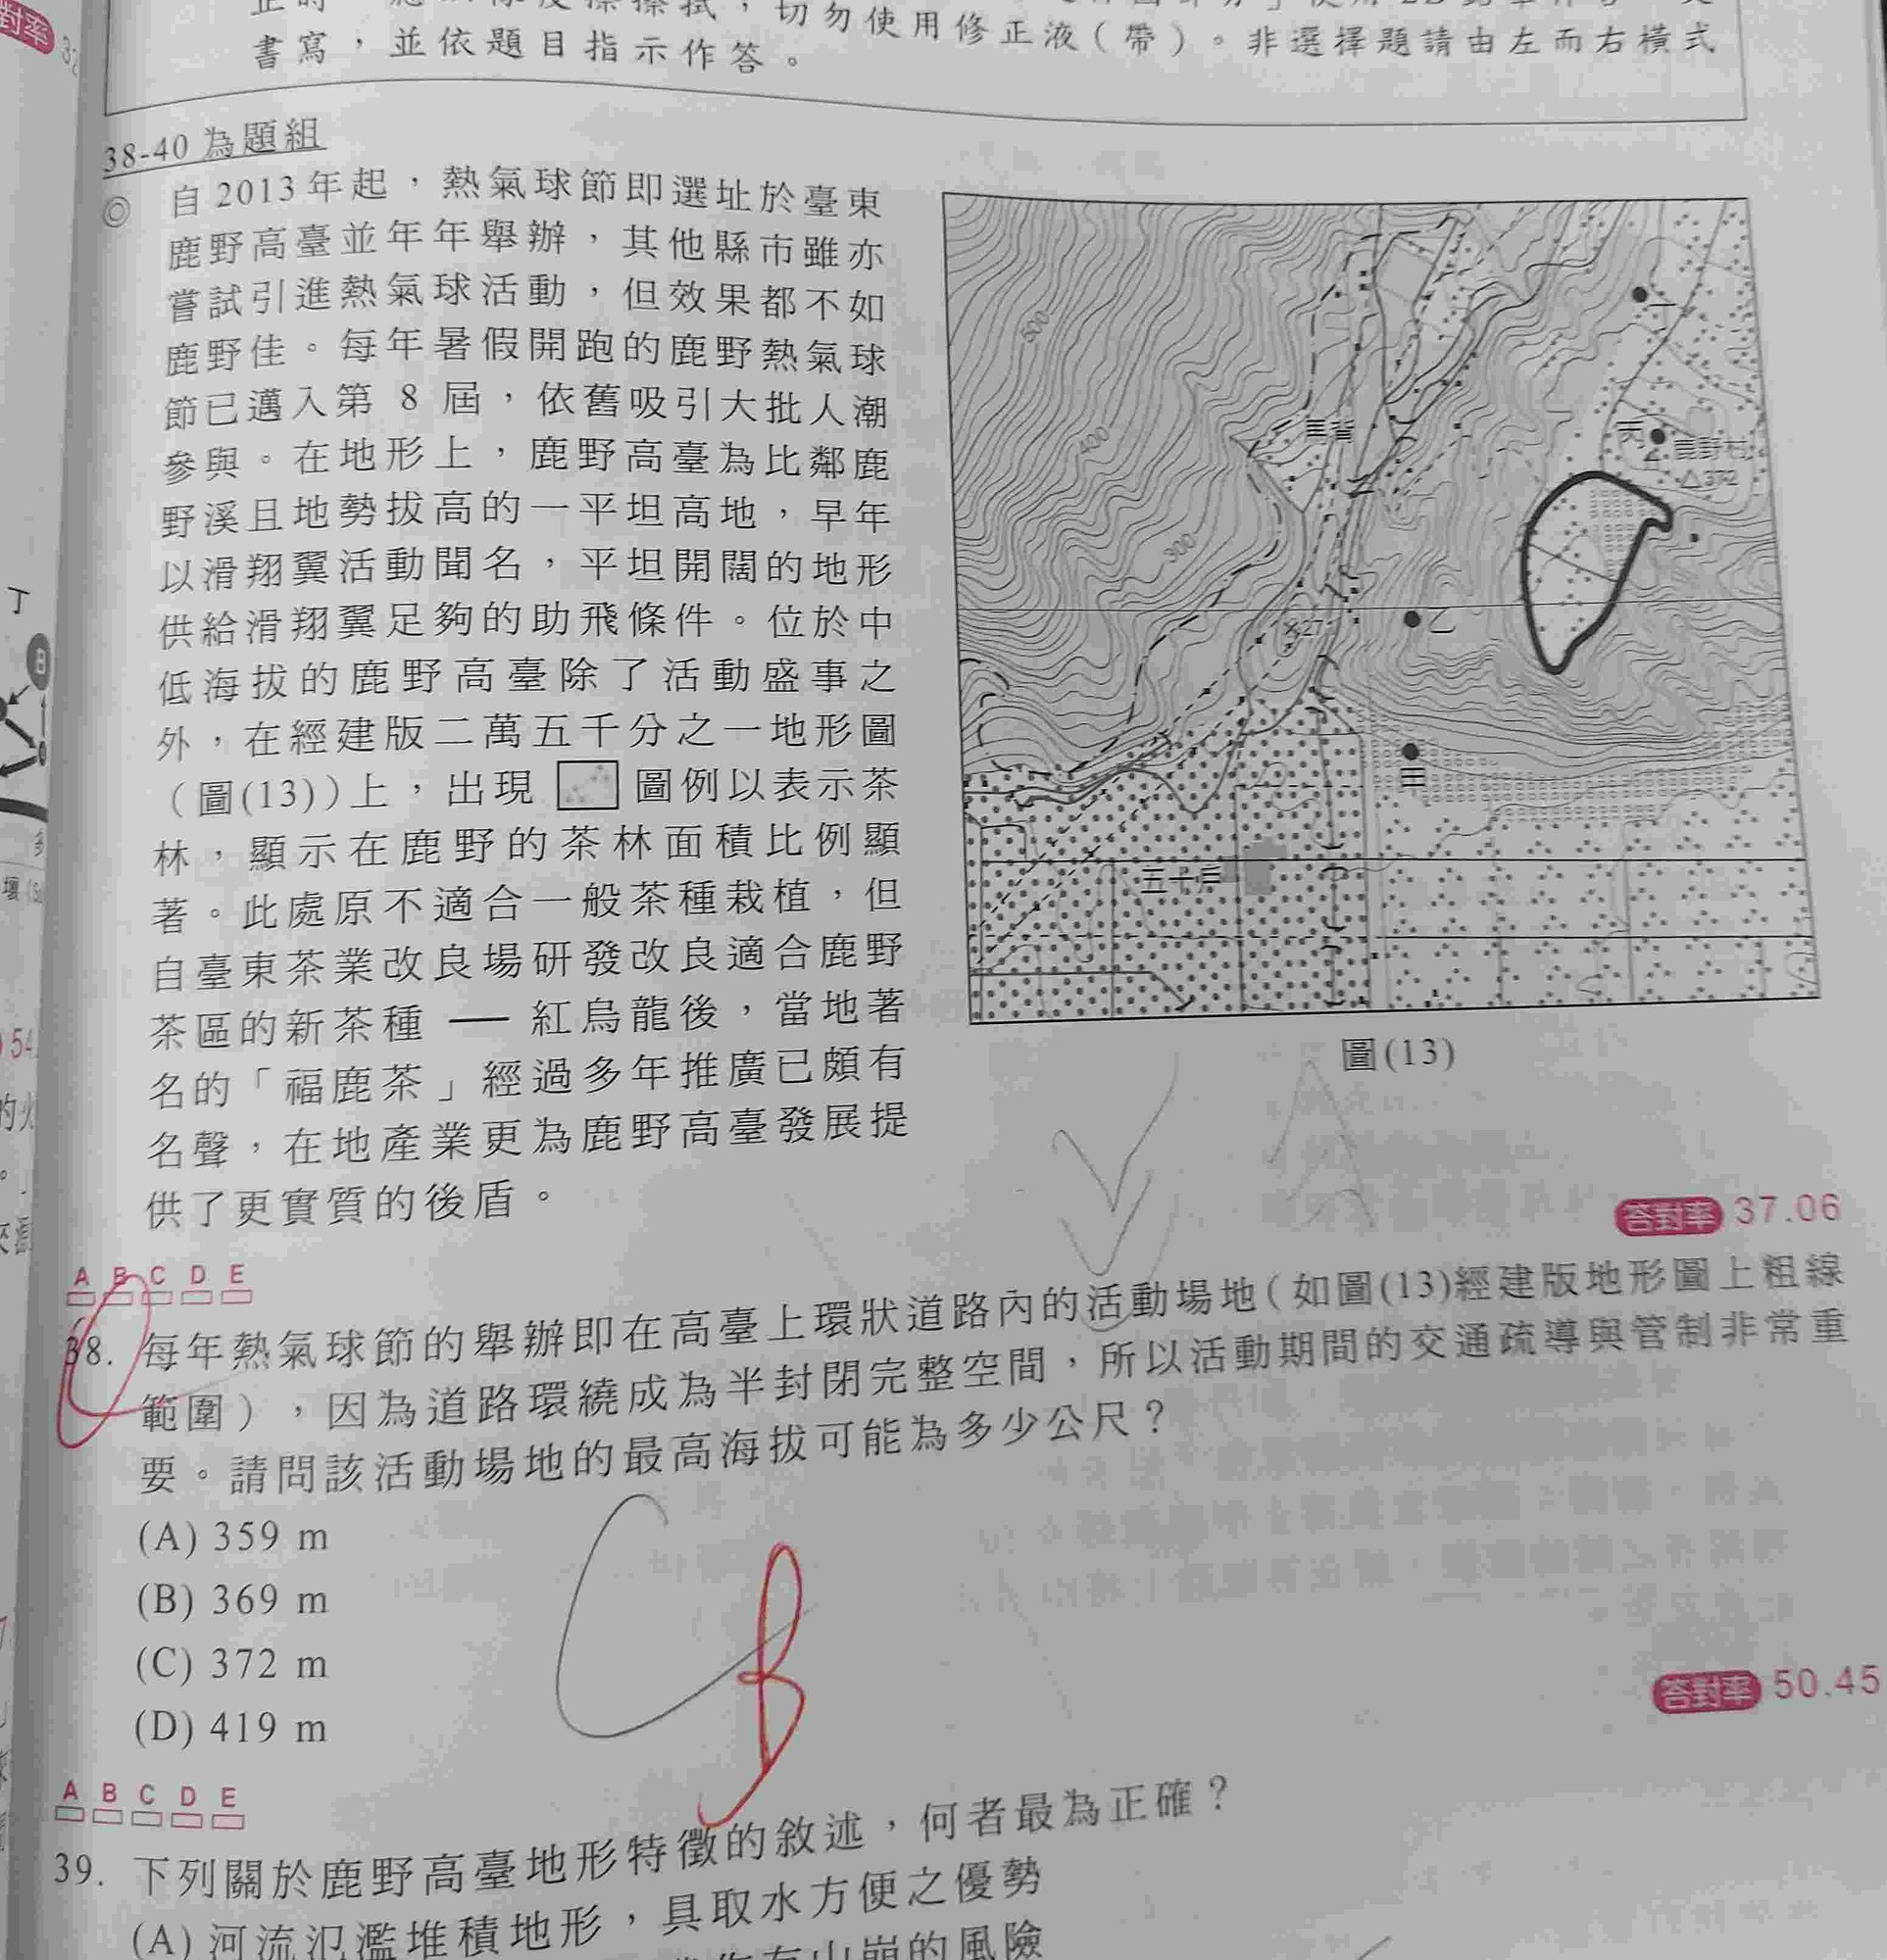 對率
書寫，並依題目指示作答。
切勿使用修正液（帶）。非選擇題請由左而右橫式
38-40 為題組
◎ 自2013年起，熱氣球節即選址於臺東
鹿野高臺並年年舉辦，其他縣市雖亦
嘗試引進熱氣球活動，但效果都不如
鹿野佳。每年暑假開跑的鹿野熱氣球
節已邁入第 8 屆，依舊吸引大批人潮
參與。在地形上，鹿野高臺為比鄰鹿
野溪且地勢拔高的一平坦高地，早年
以滑翔翼活動聞名，平坦開闊的地形
供給滑翔翼足夠的助飛條件。位於中
低海拔的鹿野高臺除了活動盛事之
外，在經建版二萬五千分之一地形圖
（圖(13)）上，出現 圖例以表示茶
林，顯示在鹿野的茶林面積比例顯
著。此處原不適合一般茶種栽植，但
自臺東茶業改良場研發改良適合鹿野
茶區的新茶種 — 紅烏龍後，當地著
名的「福鹿茶」經過多年推廣已頗有
名聲，在地產業更為鹿野高臺發展提
供了更實質的後盾。
500
400
300
馬背
丁
丙
372
327
乙
甲
五十戶
圖(13)
丁
B
54
A
答對率 37.06
A B C D E
38. 每年熱氣球節的舉辦即在高臺上環狀道路內的活動場地(如圖(13)經建版地形圖上粗線
範圍），因為道路環繞成為半封閉完整空間，所以活動期間的交通疏導與管制非常重
要。請問該活動場地的最高海拔可能為多少公尺？
(A) 359 m
(B) 369 m
(C) 372 m
(D) 419 m
C
B
答對率 50.45
A B C D E
39. 下列關於鹿野高臺地形特徵的敘述，何者最為正確？
(A) 河流氾濫堆積地形，具取水方便之優勢
山崩的風險